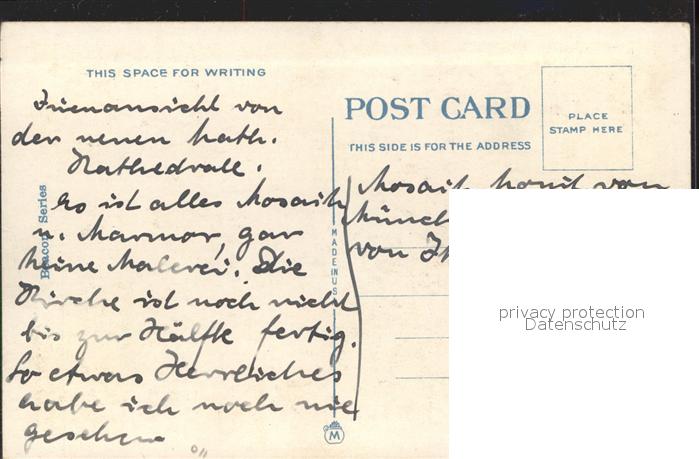 THIS SPACE FOR WRITING
Innenansicht von
der neuen kath.
Kathedrale.
Es ist alles Mosaik
u. Marmor, gar
keine Malerei. Die
Kirche ist noch nicht
bis zur Hälfte fertig.
So etwas Herrliches
habe ich noch nie
gesehen
Beacon Series
MADE IN U.S.
M
POST CARD
THIS SIDE IS FOR THE ADDRESS
PLACE
STAMP HERE
Mosaik kommt von
von
privacy protection
Datenschutz